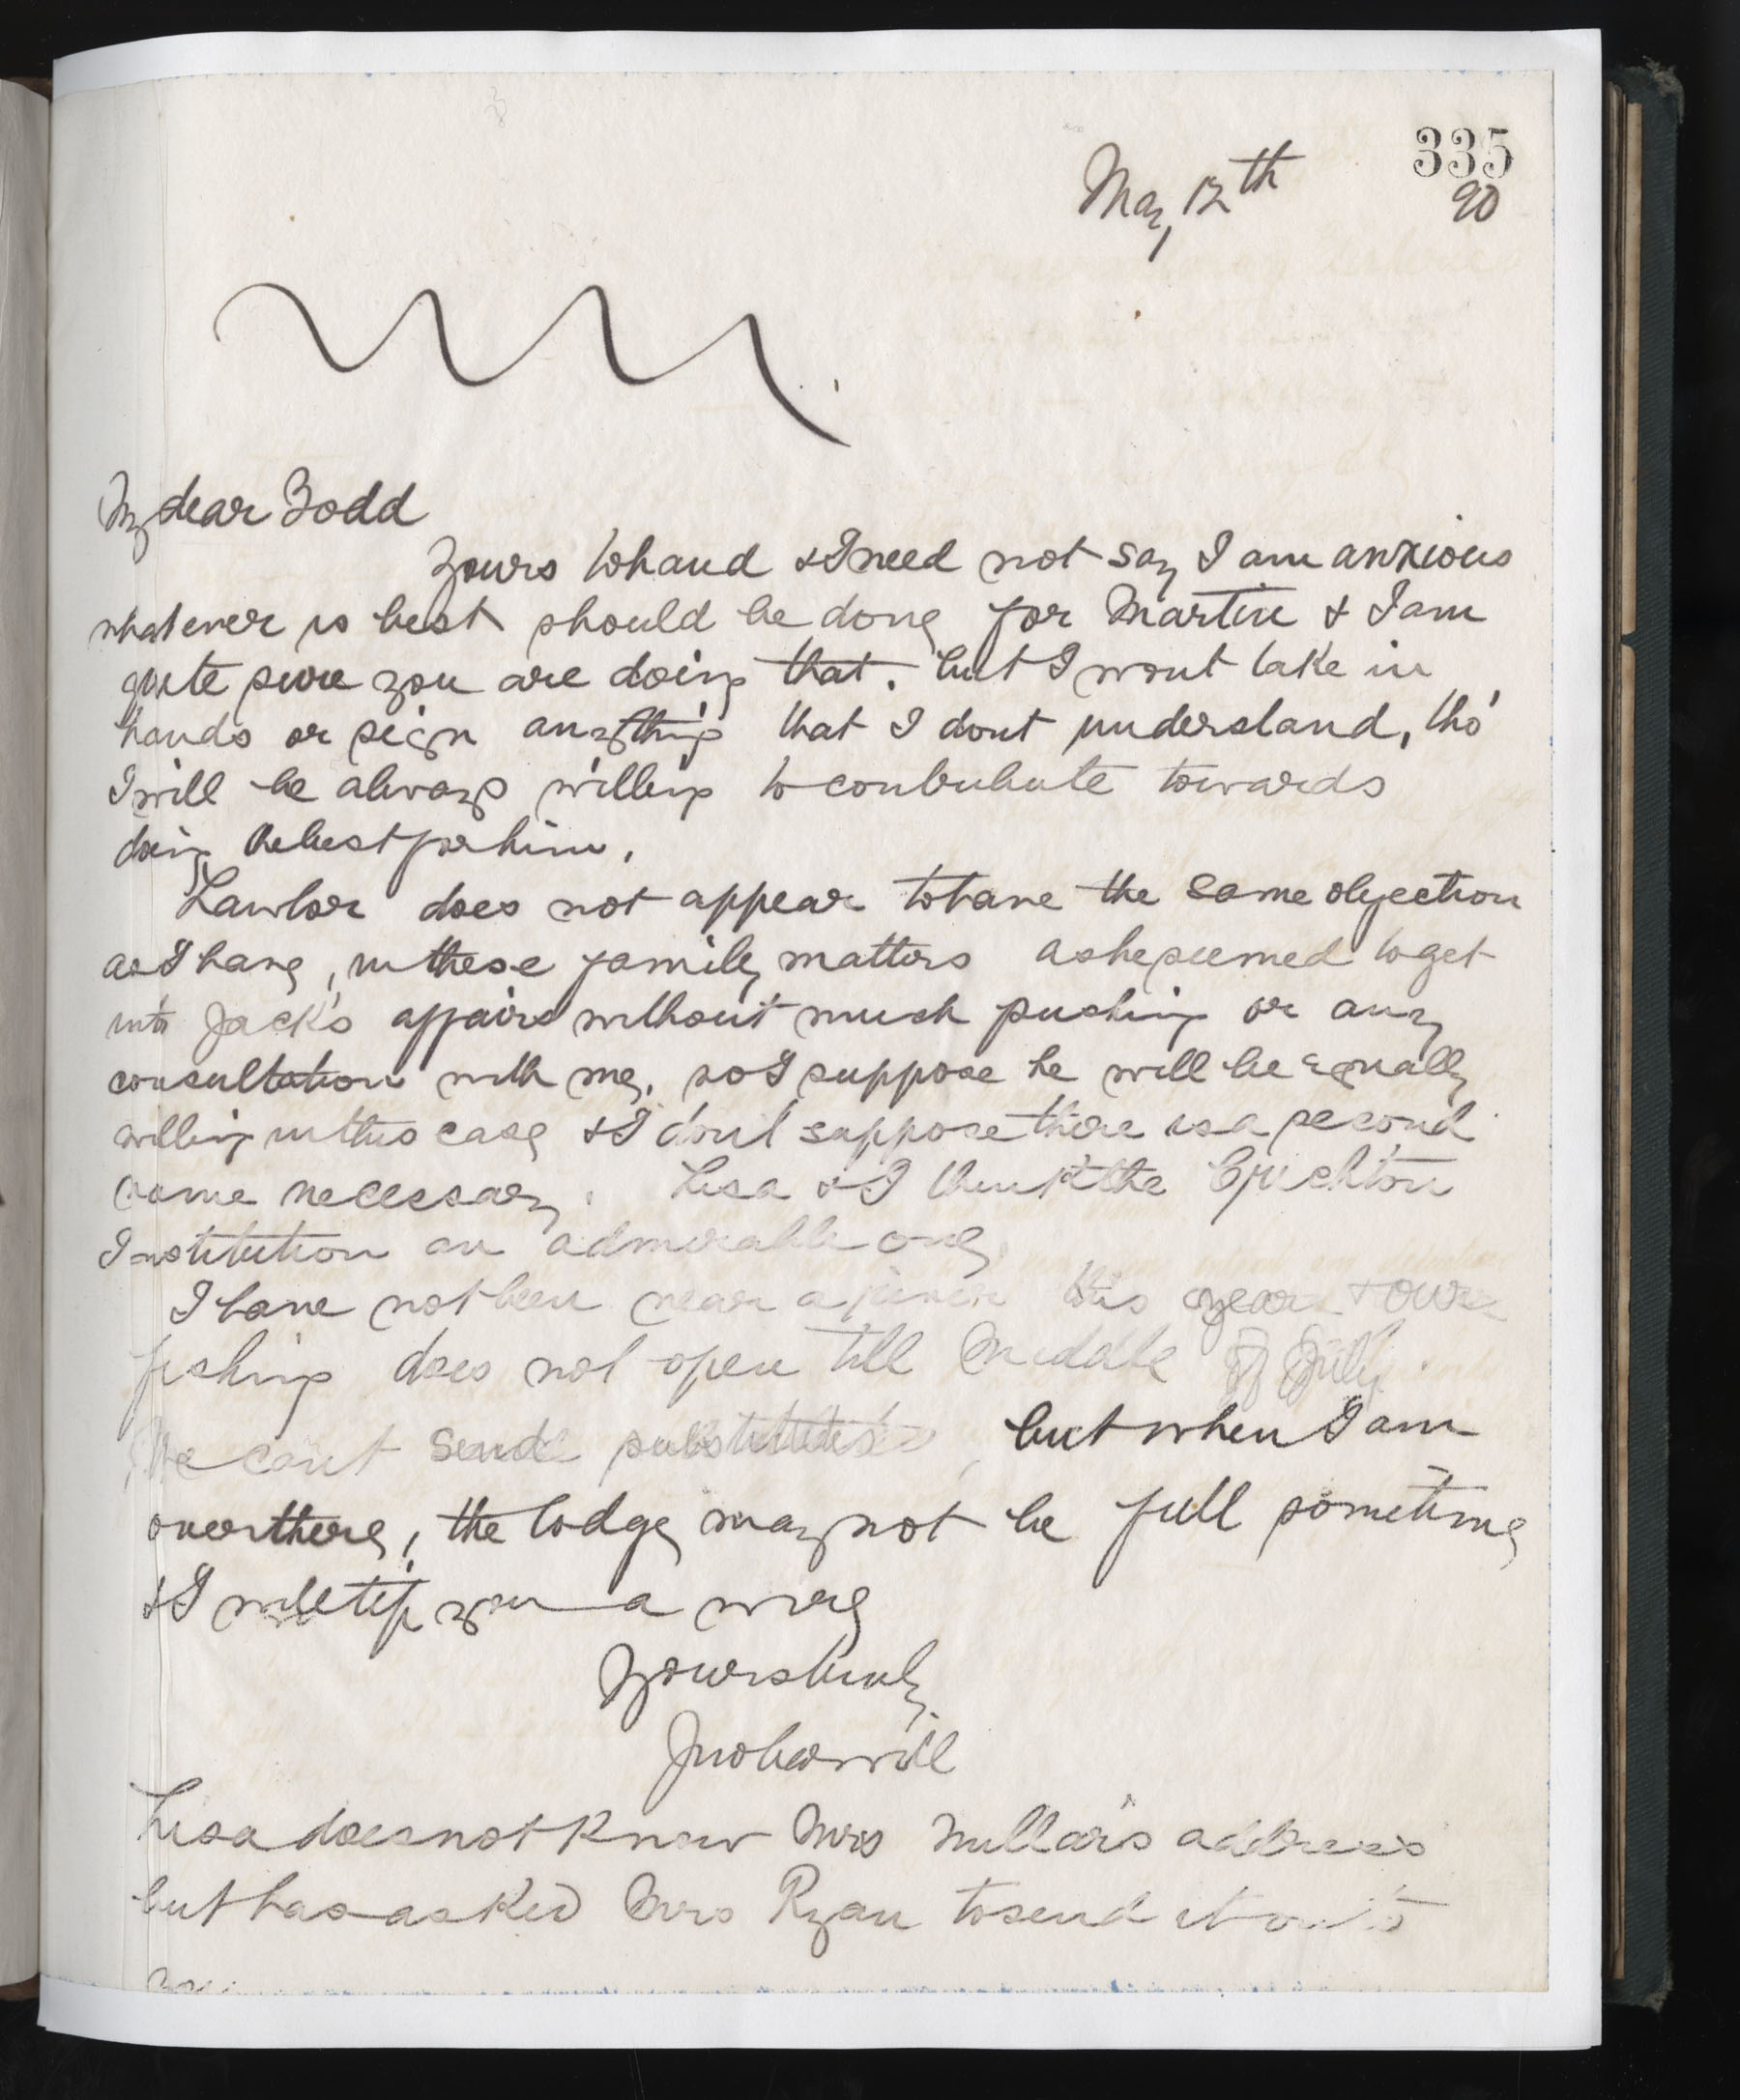 335
May 12th 90
My dear Todd
Yours to hand & I need not say I am anxious
whatever is best should be done for Martin & I am
quite sure you are doing that. but I wont take in
hands or sign anything that I dont understand, tho'
I will be always willing to contribute towards
doing the best for him.
Lawlor does not appear to have the same objection
as I have, in these family matters as he seemed to get
into Jack's affairs without much pushing or any
consultation with me, so I suppose he will be equally
willing in this case & I dont suppose there is a second
name necessary. Lisa & I think the Crichton
Institution an admirable one.
I have not been near a river this year & our
fishing does not open till Middle of July.
We cant send substitutes, but when I am
over there, the lodge may not be full sometime
& I will tip you a wire
Yours truly
Jno
Lisa does not know Mrs Millar's address
but has asked Mrs Ryan to send it on to
you